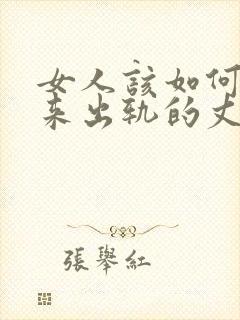 女人該如何
来出轨的丈
張舉紅